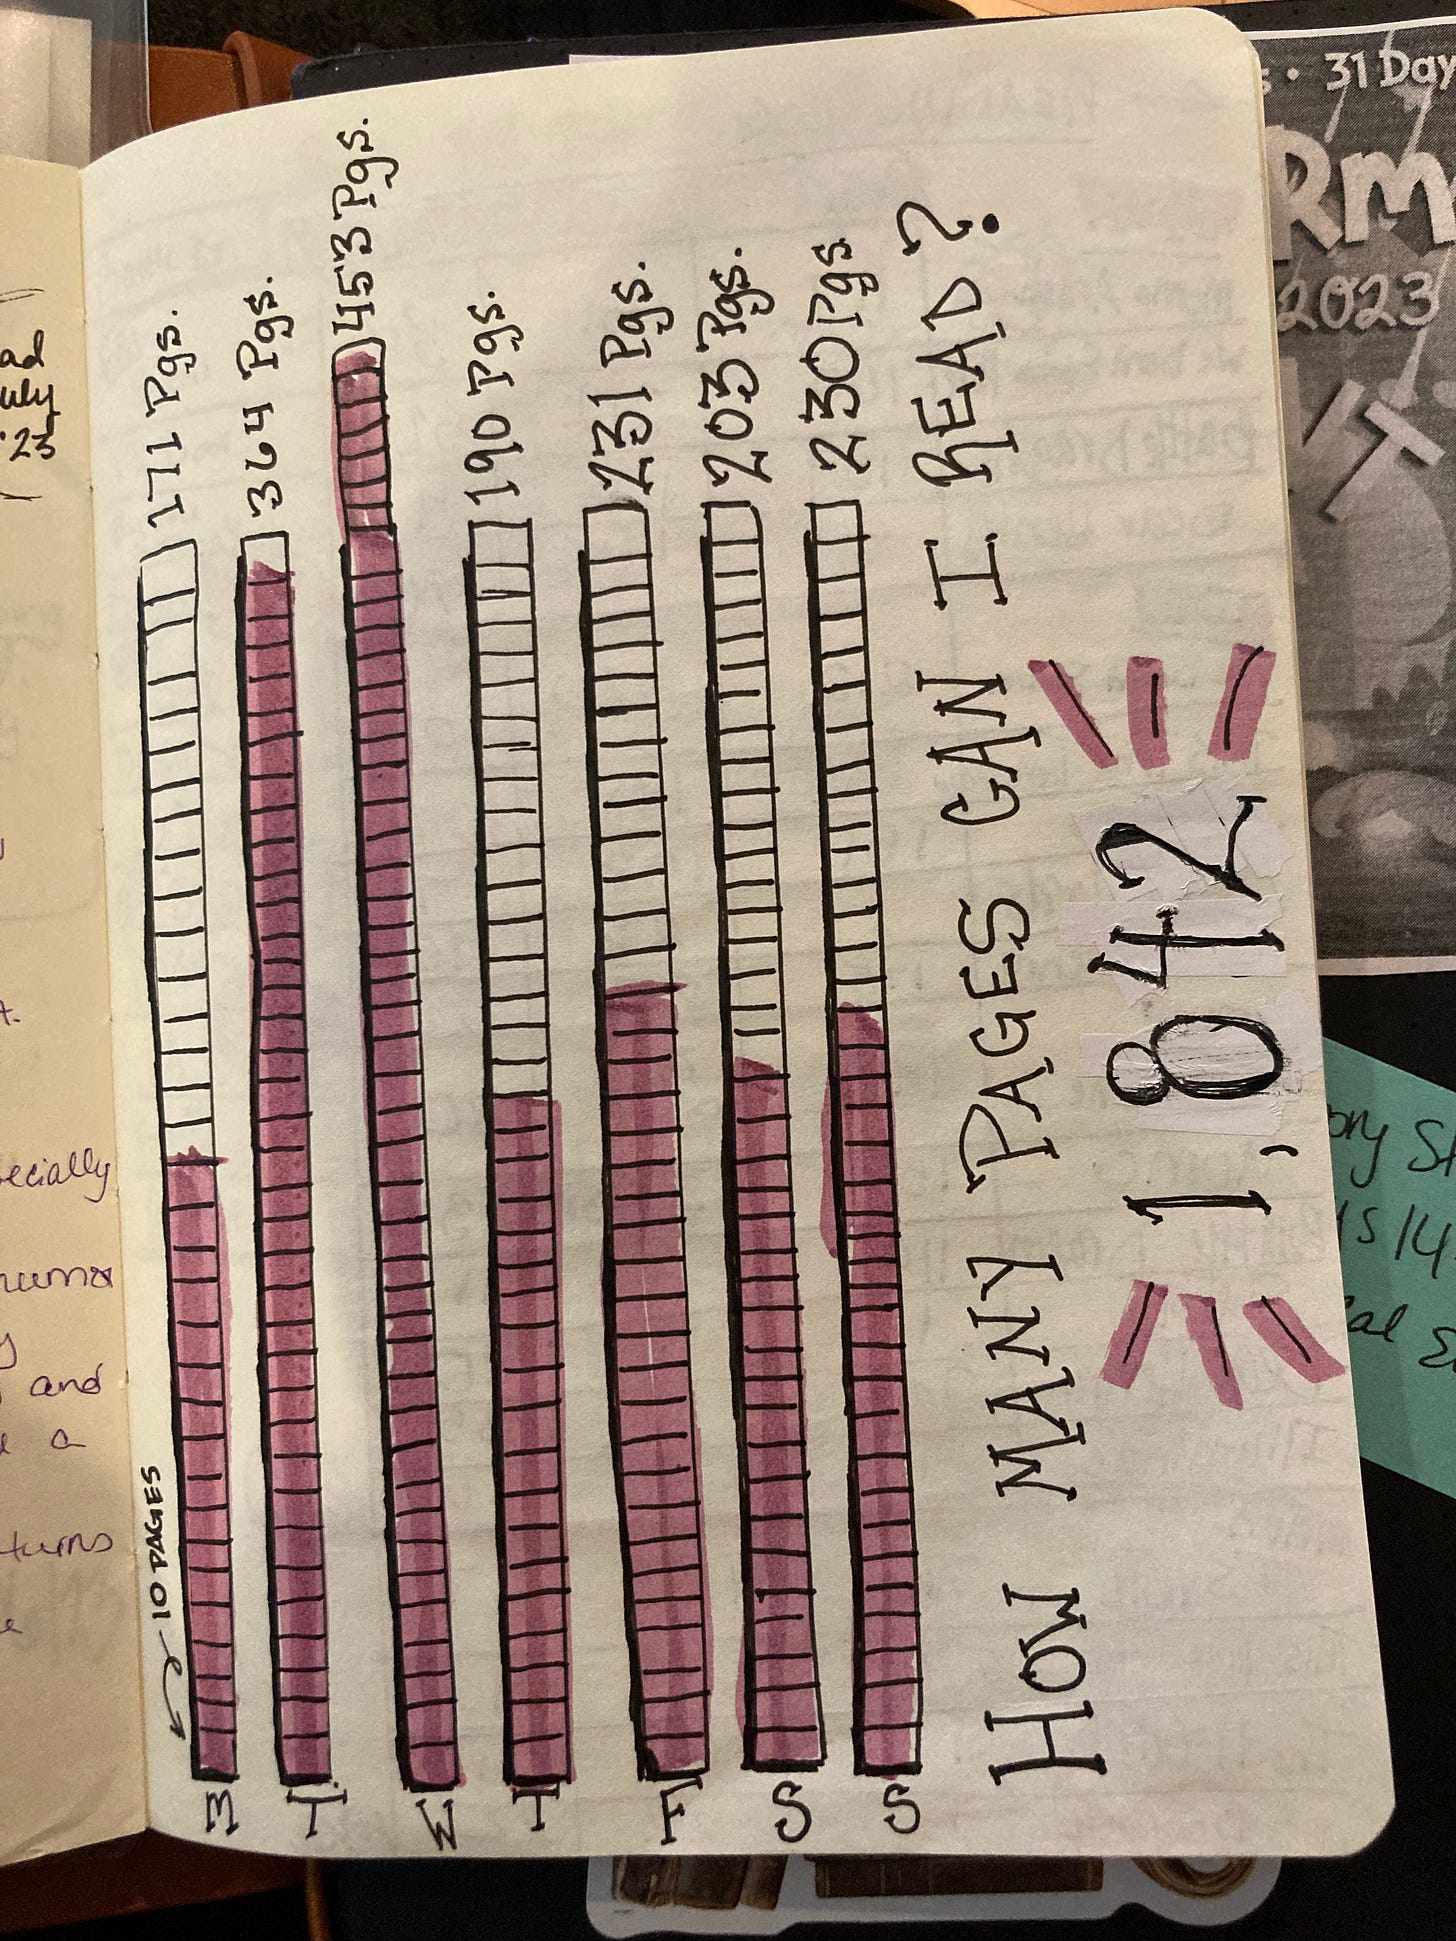 ad
uly
'23
ecially
humor
and
a
turns
10 PAGES
M
171 Pgs.
T.
364 Pgs.
W
453 Pgs.
T
190 Pgs.
F
231 Pgs.
S
203 Pgs.
S
230 Pgs
HOW MANY PAGES CAN I READ?
1,842
s • 31 Day
RM
2023
ory St
is 14
cal